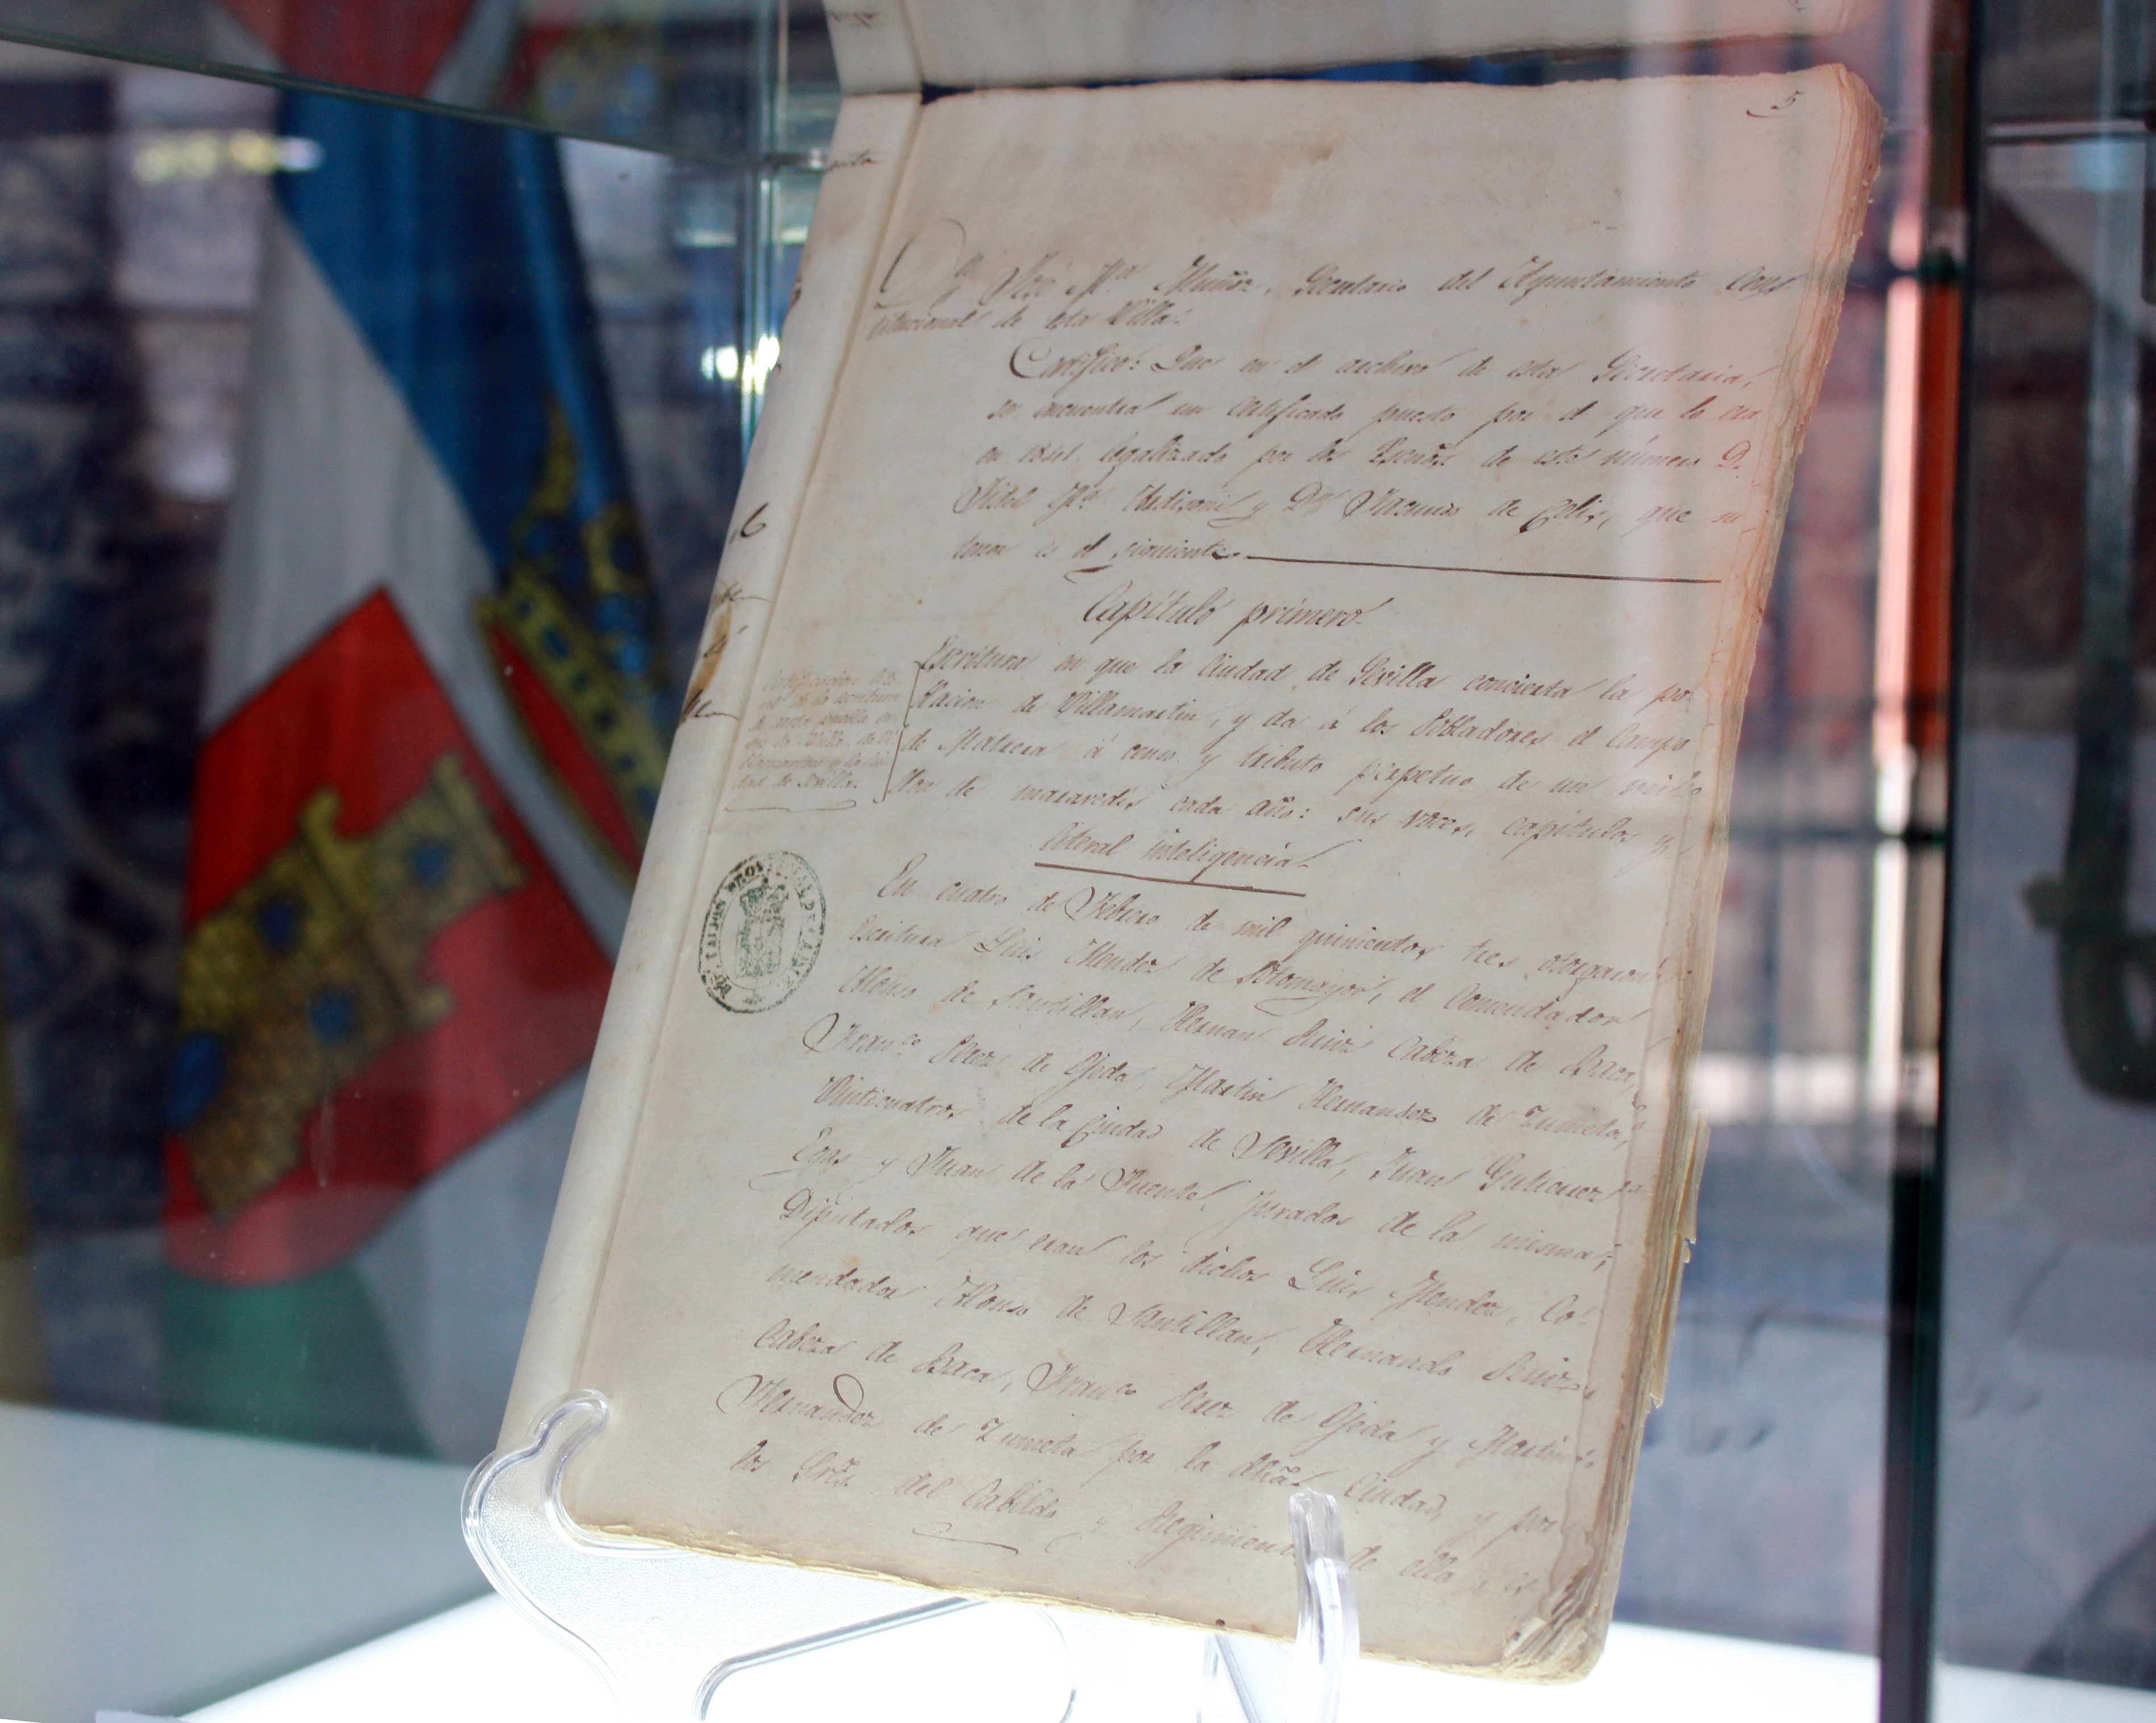 5
Dn José Ma Muñoz, Secretario del Ayuntamiento Cons
titucional de esta Villa.
Certifico: Que en el archivo de esta Secretaria,
se encuentra un certificado puesto por el que lo era
en 1841 legalizado por los de este número D.
y Dn de Celis, que su
tenor es el siguiente.
Capítulo primero.
Escritura en que la Ciudad de Sevilla concierta la po
blacion de Villamartin, y da á los Pobladores el Campo
de Matrera á censo y tributo perpetuo de un
de maravedis cada año: sus voces, capítulos y
literal inteligencia.
de la escritura
dad de Sevilla.
En cuatro de Febrero de mil quinientos tres otorgaron
Escritura Luis Mendez de Sotomayor, el Comendador
Alonso de Santillan, Hernan Ruiz Cabeza de Baca,
Franco Perez de Ojeda, Martin Hernandez de Zumeta,
Vinticuatros de la Ciudad de Sevilla, Juan Gutierrez
Egas y Juan de la Fuente, Jurados de la misma;
Diputados que eran los dichos Luis Mendez, Co-
mendador Alonso de Santillan, Hernando Ruiz
Cabeza de Baca, Franco Perez de Ojeda y Martin
Hernandez de Zumeta por la dha Ciudad, y por
los Sres. del Cabildo y Regimiento de ella